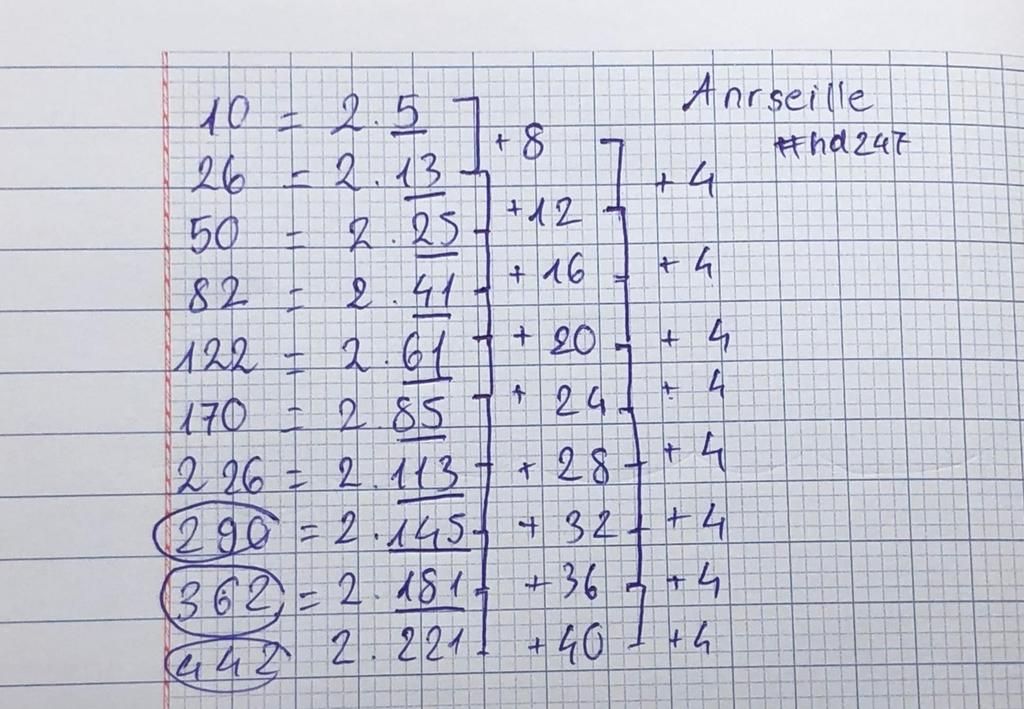 Anrseille
#hd247
10 = 2 . 5
+ 8
26 = 2 . 13
+ 4
+12
50 = 2 . 25
+ 4
+ 16
82 = 2 . 41
+ 20
+ 4
122 = 2 . 61
+ 24
+ 4
170 = 2 . 85
+ 28
+ 4
226 = 2 . 113
+ 32
+ 4
290 = 2 . 145
+ 36
+ 4
362 = 2 . 181
+ 40
+ 4
442 2 . 221